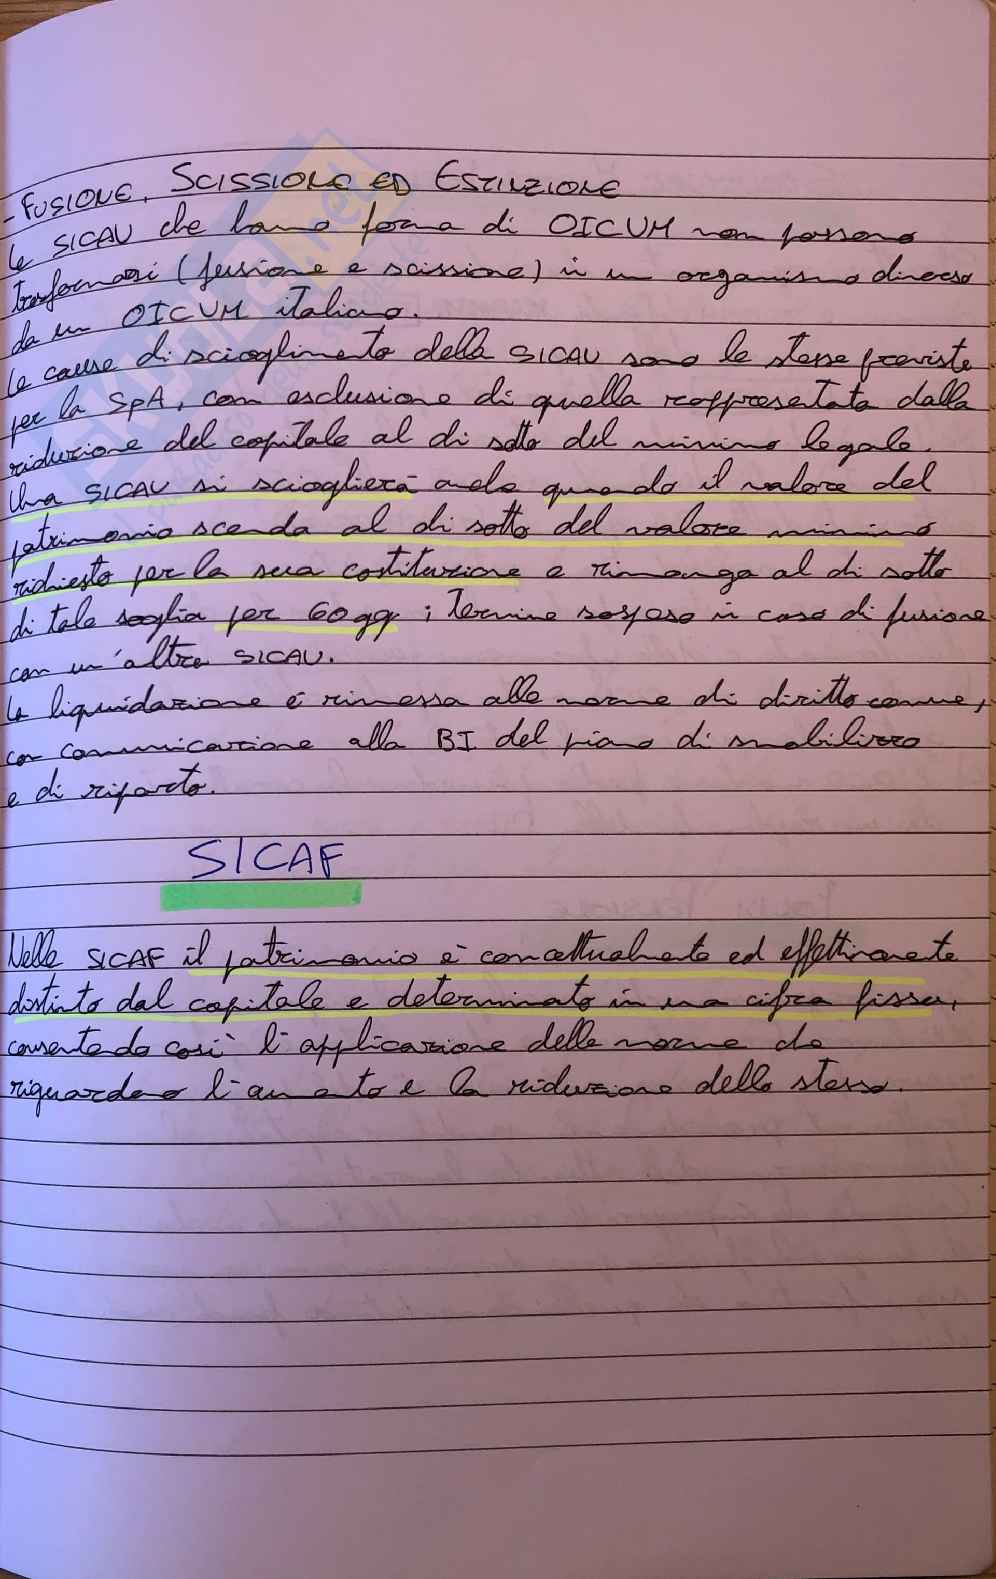 - FUSIONE, SCISSIONE ED ESTINZIONE
Le SICAV che hanno forma di OICVM non possono
trasformarsi (fusione e scissione) in un organismo diverso
da un OICVM italiano.
Le cause di scioglimento della SICAV sono le stesse previste
per la SpA, con esclusione di quella rappresentata dalla
riduzione del capitale al di sotto del minimo legale.
Una SICAV si scioglierà anche quando il valore del
patrimonio scenda al di sotto del valore minimo
richiesto per la sua costituzione e rimanga al di sotto
di tale soglia per 60 gg; termine sospeso in caso di fusione
con un'altra SICAV.
La liquidazione è rimessa alle norme di diritto comune,
con comunicazione alla BI del piano di smobilizzo
e di riparto.
SICAF
Nelle SICAF il patrimonio è concettualmente ed effettivamente
distinto dal capitale e determinato in una cifra fissa,
consentendo così l'applicazione delle norme che
riguardano l'aumento e la riduzione dello stesso.